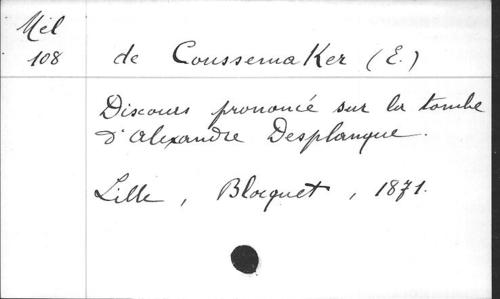 Mél
108
de Coussemaker (E.)
Discours prononcé sur la tombe
d'Alexandre Desplanque.
Lille, Blocquet, 1871.